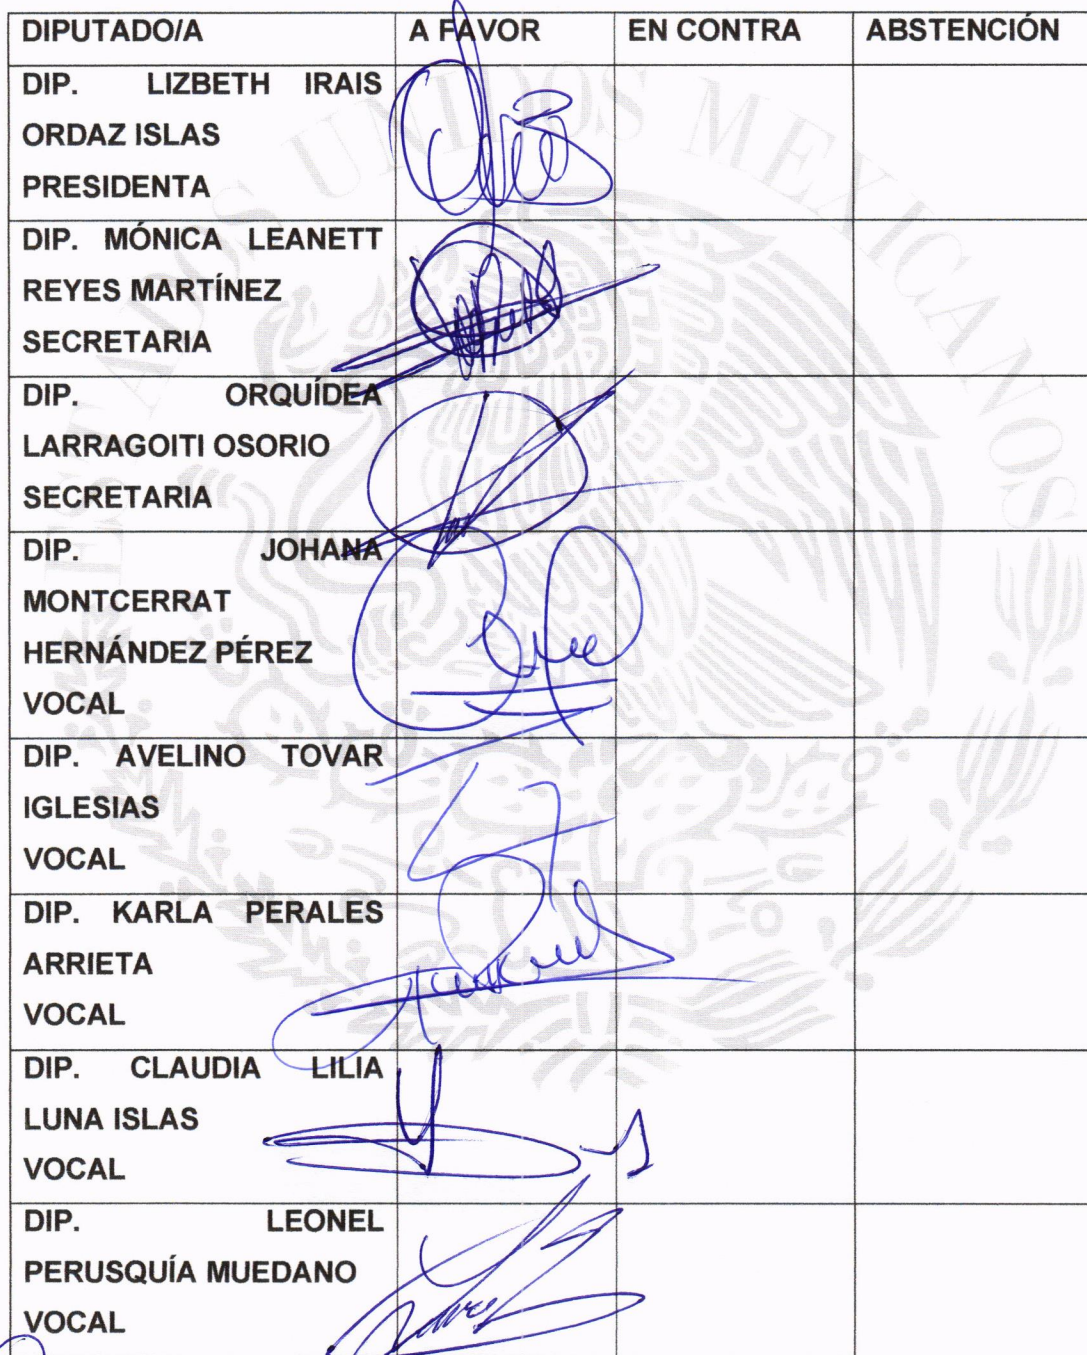 DIPUTADO/A A FAVOR EN CONTRA ABSTENCIÓN
DIP. LIZBETH IRAIS
ORDAZ ISLAS
PRESIDENTA
DIP. MÓNICA LEANETT
REYES MARTÍNEZ
SECRETARIA
DIP. ORQUÍDEA
LARRAGOITI OSORIO
SECRETARIA
DIP. JOHANA
MONTCERRAT
HERNÁNDEZ PÉREZ
VOCAL
DIP. AVELINO TOVAR
IGLESIAS
VOCAL
DIP. KARLA PERALES
ARRIETA
VOCAL
DIP. CLAUDIA LILIA
LUNA ISLAS
VOCAL
DIP. LEONEL
PERUSQUÍA MUEDANO
VOCAL
ESTADOS UNIDOS MEXICANOS